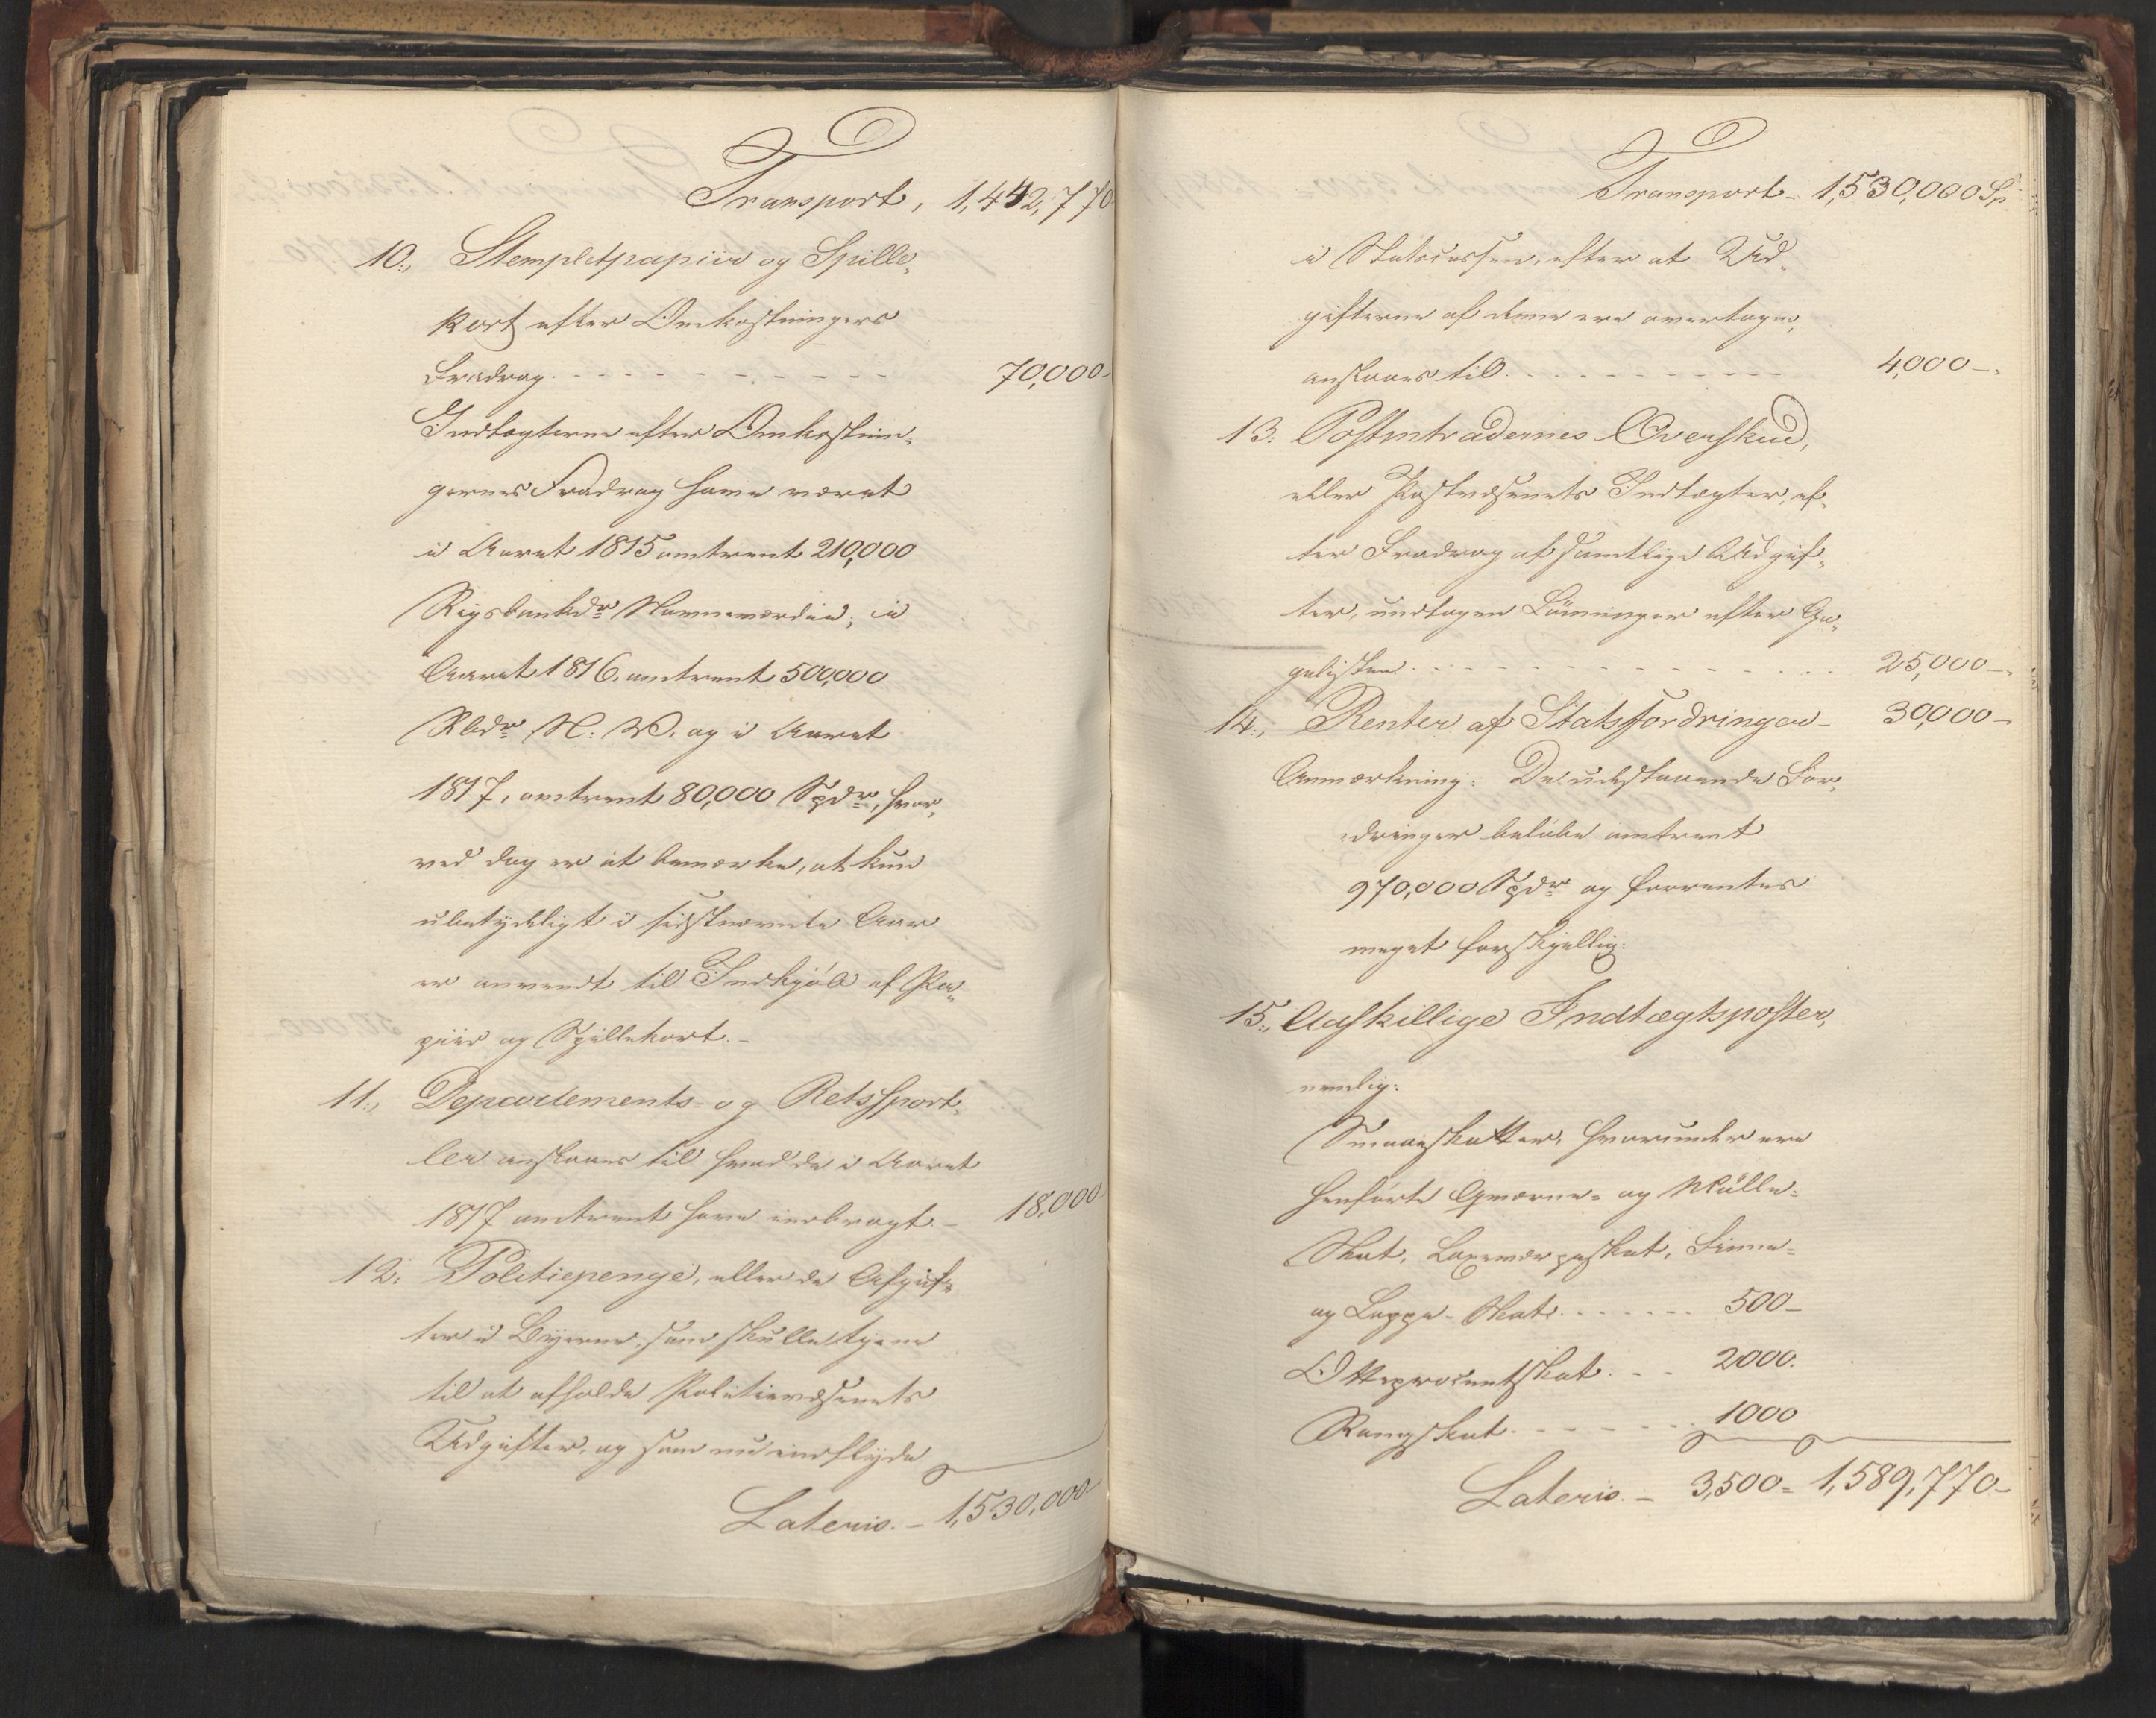 Transport, 1,442,770
10., Stempletpapiir og Spille„
kort efter Omkostningers
Fradrag - - - - - - - - - - 70,000
Indtægterne efter Omkostnin„
gernes Fradrag have været
i Aaret 1815 omtrent 210,000
Rigsbankdr Navneværdie, i
Aaret 1816 omtrent 500,000
Rbdr N: V. og i Aaret
1817, omtrent 80,000 Spdr, hvor„
ved dog er at bemærke, at kun
ubetydeligt i sidstnævnte Aar
er anvendt til Indkjøb af Pa„
piir og Spillekort. –
11., Departements- og Retssport„
ler anslaaes til hvad de i Aaret
1817 omtrent have indbragt – 18,000
12: Politiepenge, eller de Afgif„
ter i Byerne, som skulle tjene
til at afholde Politievæsenets
Udgifter, og som nu indflyde
Lateris. – 1,530,000
Transport – 1,530,000 Sp
i Statscassen, efter at Ud„
gifterne af denne ere overtagne,
anslaaes til - - - - - - - - - - 4,000 –
13: Postintradernes Overskud,
eller Postvæsenets Indtægter, ef„
ter Fradrag af samtlige Udgif„
ter, undtagen Lønninger efter Ga„
gelisten - - - - - - - - - - - - 25,000 –
14., Renter af Statsfordringer – 30,000 –
Anmærkning: De udestaaende For„
dringer beløbe omtrent
970,000 Spdr og forrentes
meget forskjellig.
15., Adskillige Indtægtsposter,
nemlig:
Smaaeskatter, hvorunder ere
henførte Qværne- og Mølle-
Skat, Finne-
og Lappe-Skat - - - - - - 500 –
Otteprocentskat - - - 2000.
Rangskat - - - - - - - 1000
Lateris. – 3,500 = 1,589,770 –